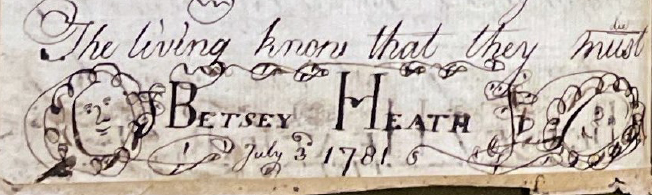 The living know that they must die
BETSEY HEATH
July 3 1781